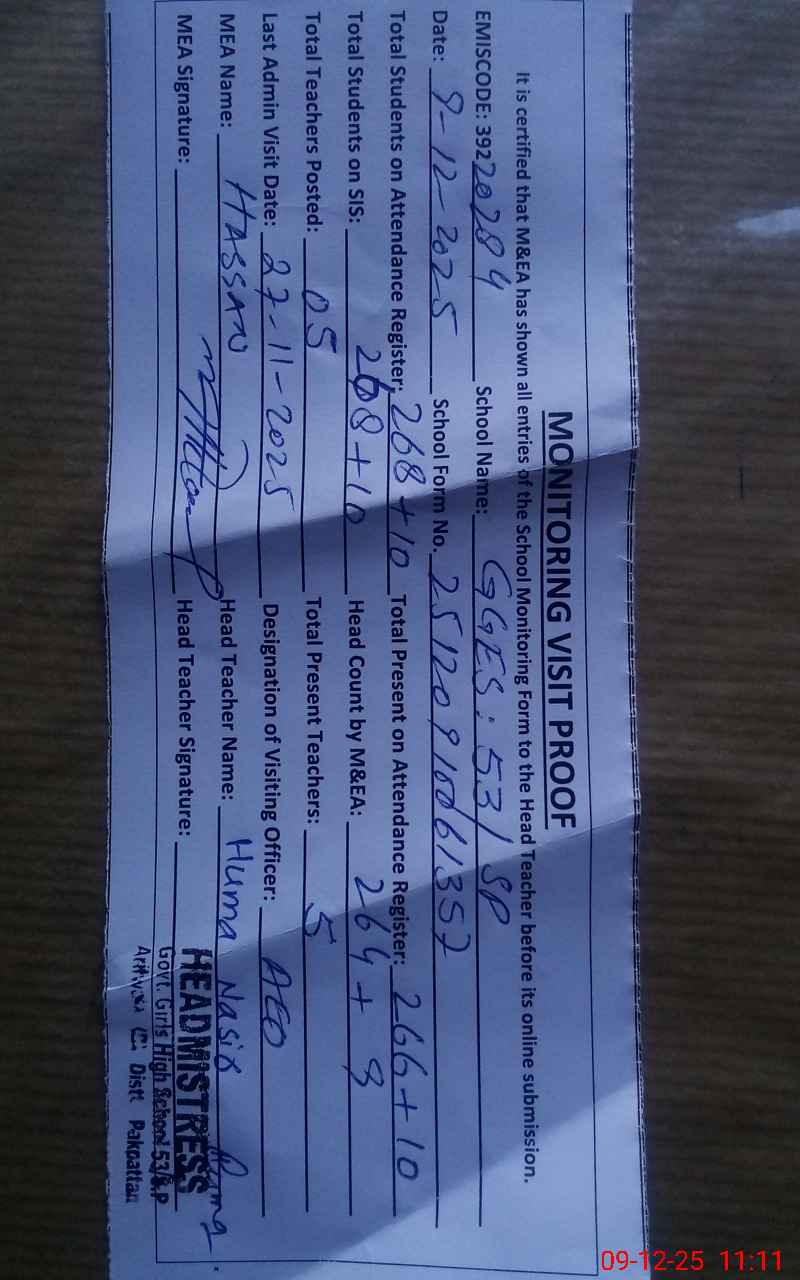 MONITORING VISIT PROOF
It is certified that M&EA has shown all entries of the School Monitoring Form to the Head Teacher before its online submission.
EMISCODE: 39220284 School Name: GGES: 53/SP
Date: 9-12-2025 School Form No. 25120910061357
Total Students on Attendance Register: 268+10 Total Present on Attendance Register: 266+10
Total Students on SIS: 268+10 Head Count by M&EA: 264+9
Total Teachers Posted: 05 Total Present Teachers: 5
Last Admin Visit Date: 27-11-2025 Designation of Visiting Officer: AEO
MEA Name: HASSAN Head Teacher Name: Huma Nasir
MEA Signature: Head Teacher Signature: Huma
HEADMISTRESS
Govt. Girls High School 53/S.P
Distt Pakpattan
09-12-25 11:11